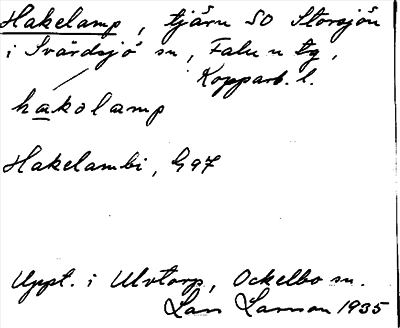 Hakelamp, tjärn SO Storsjön
i Svärdsjö sn, Falu n tg,
Kopparb. l.
hakolamp
Hakelambi, G97
Uppt. i Ulvtorp, Ockelbo sn.
Lars Larsson 1935